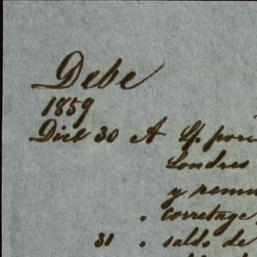 Debe
1859
Dice 30 A
Londres
y
" corretage
31 " saldo de